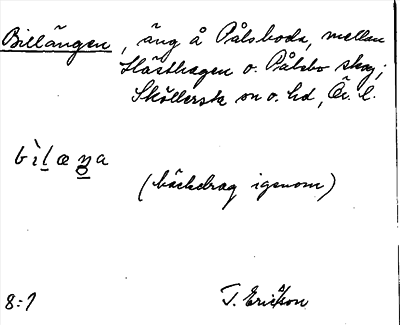 Billängen, äng å Pålsboda, mellan
Hästhagen o. Pålsbo skog;
Sköllersta sn o. hd, Ör. l.
bìlæŋa
(bäckdrag igenom)
8:1 T. Ericsson